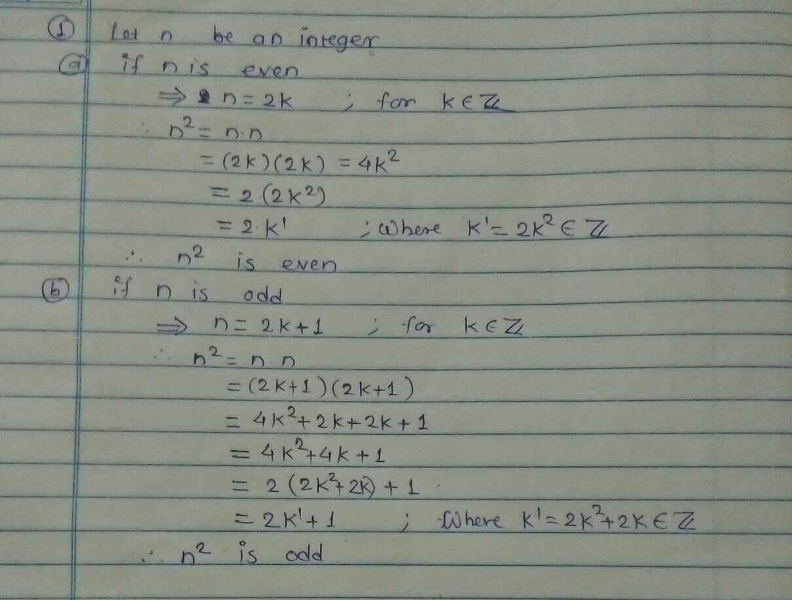 ① Let n be an integer
ⓐ if n is even
⇒ n = 2k ; for k ∈ ℤ
∴ n² = n·n
= (2k)(2k) = 4k²
= 2(2k²)
= 2·k' ; Where k' = 2k² ∈ ℤ
∴ n² is even
ⓑ if n is odd
⇒ n = 2k+1 ; for k ∈ ℤ
∴ n² = n·n
= (2k+1)(2k+1)
= 4k²+2k+2k+1
= 4k²+4k+1
= 2(2k²+2k)+1
= 2k'+1 ; Where k' = 2k²+2k ∈ ℤ
∴ n² is odd